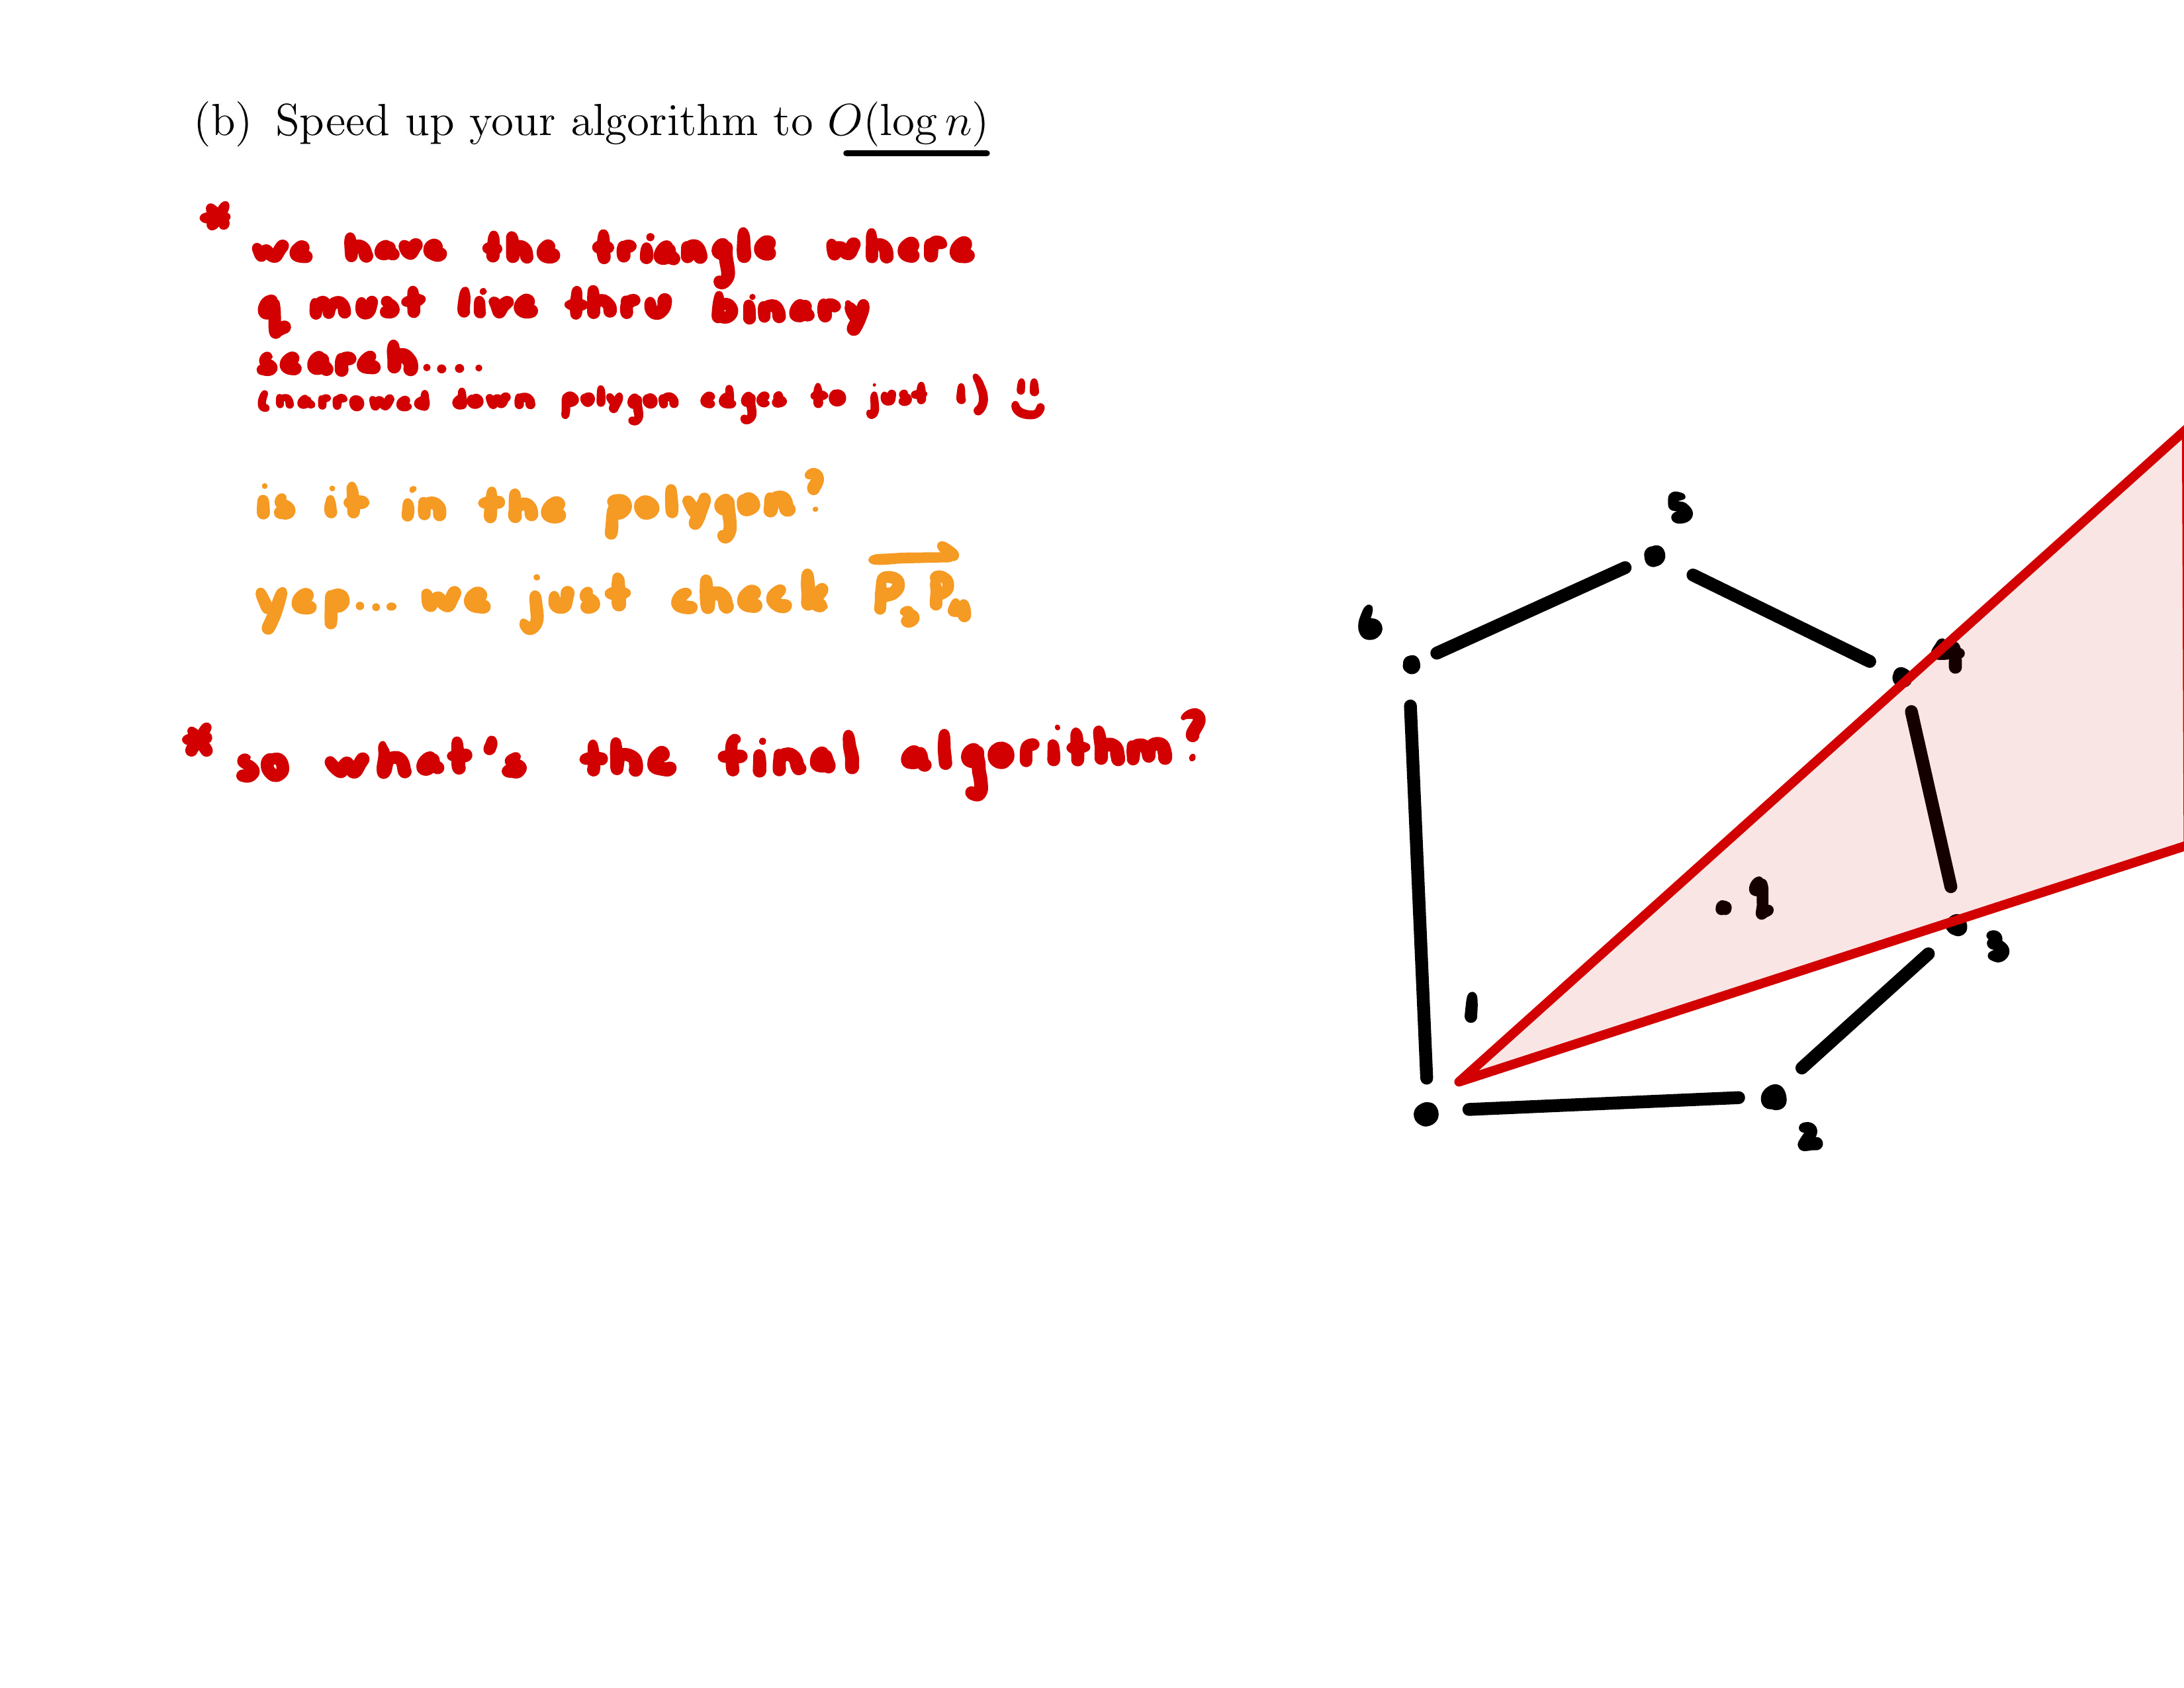 (b) Speed up your algorithm to O(log n)
* we have the triangle where
q must live thru binary
search....
(narrowed down polygon edges to just 1) :)
is it in the polygon?
yep... we just check P₃P₄
* so what's the final algorithm?
5
6
4
q
3
1
2